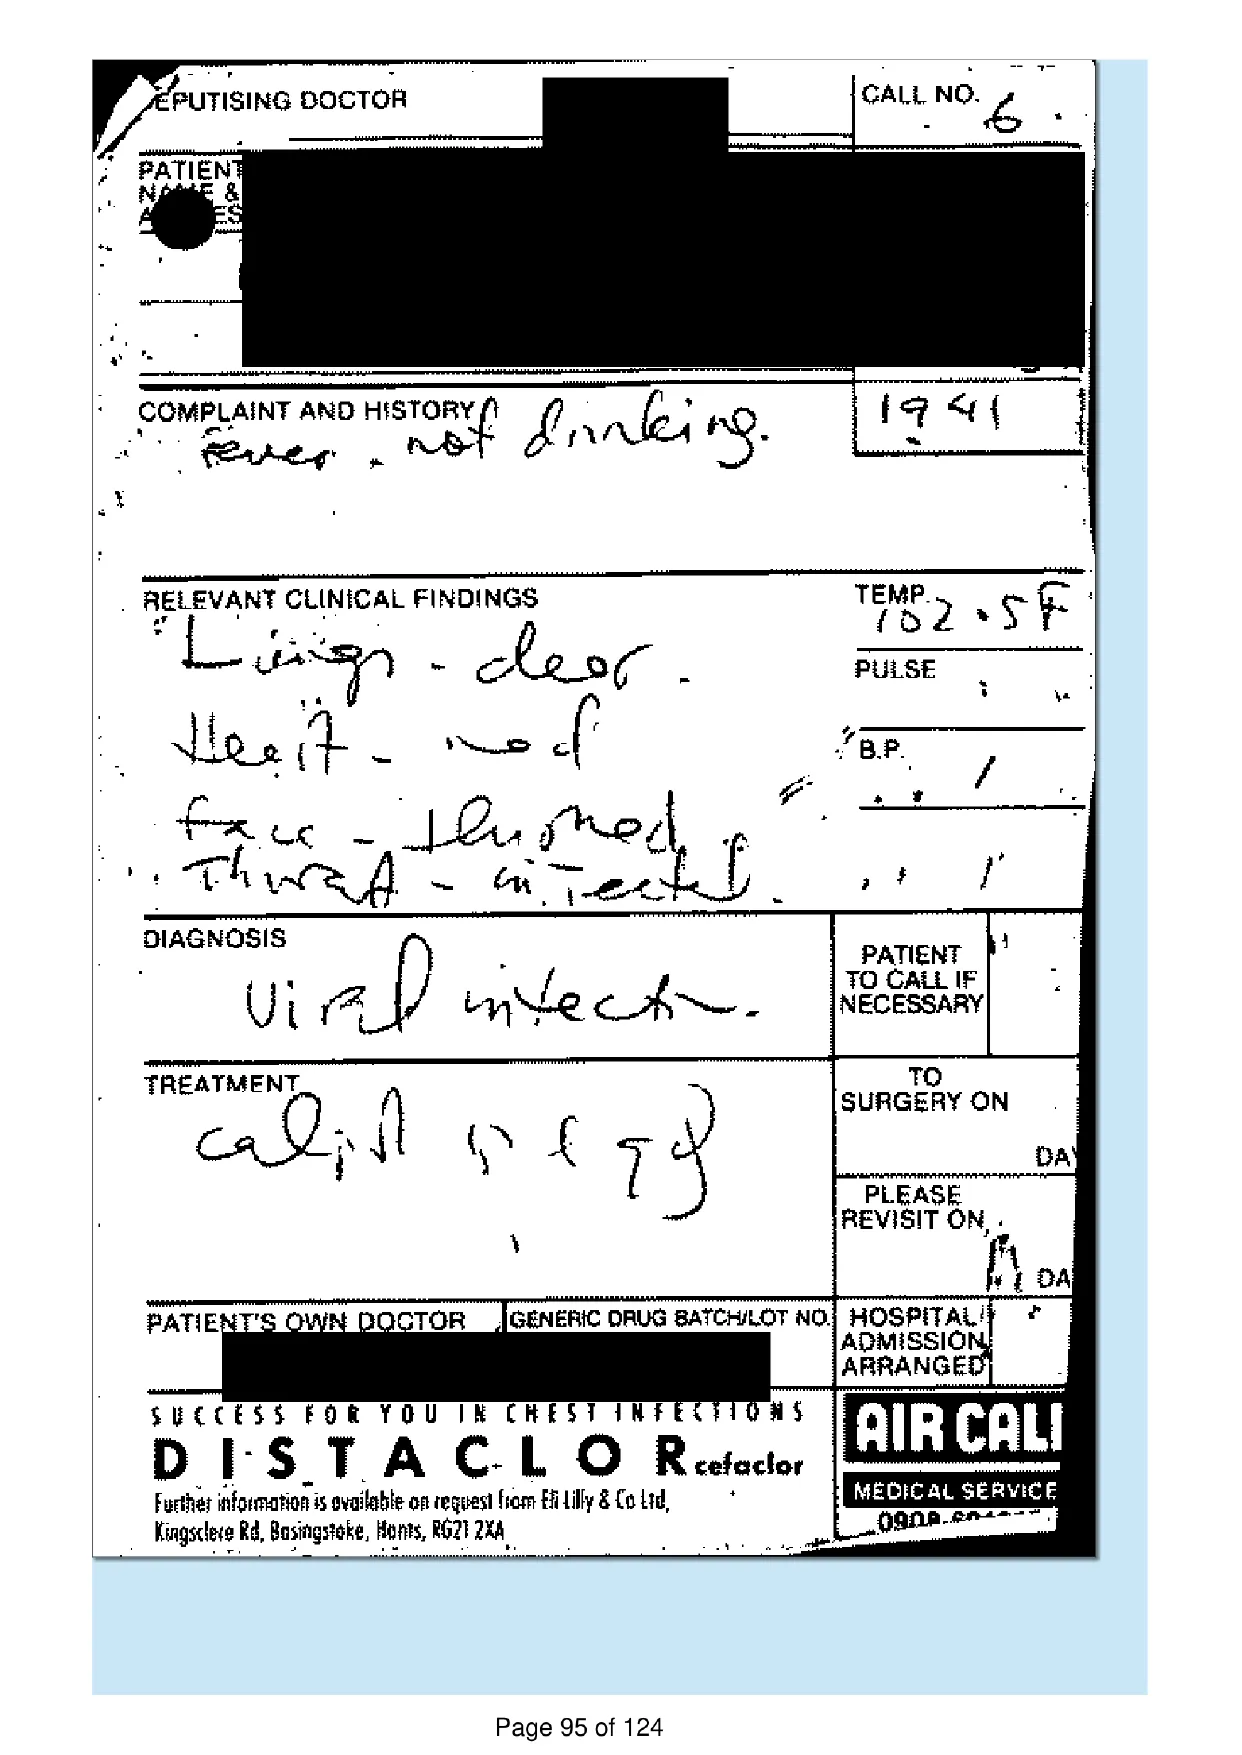 EPUTISING DOCTOR
CALL NO. 6
PATIENT
NAME &
ES
COMPLAINT AND HISTORY
1941
Fever. not drinking.
RELEVANT CLINICAL FINDINGS
TEMP. 102.5F
Lungs - clear.
PULSE
Heart - nad
B.P. /
Face - flushed
Throat - infected.
DIAGNOSIS
Viral infectn.
PATIENT
TO CALL IF
NECESSARY
TREATMENT
TO
SURGERY ON
DAY
calpol
PLEASE
REVISIT ON
DA
PATIENT'S OWN DOCTOR
GENERIC DRUG BATCH/LOT NO.
HOSPITAL
ADMISSION
ARRANGED
SUCCESS FOR YOU IN CHEST INFECTIONS
DISTACLOR cefaclor
Further information is available on request from Eli Lilly & Co Ltd,
Kingsclere Rd, Basingstoke, Hants, RG21 2XA
AIR CALL
MEDICAL SERVICE
0908
Page 95 of 124